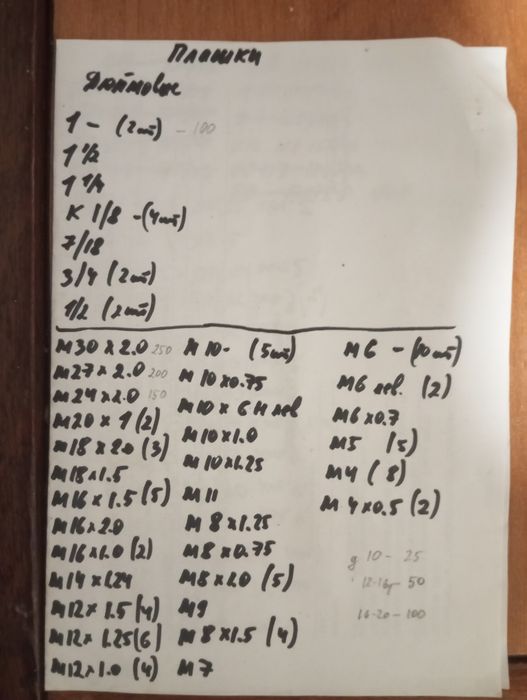 Плашки
Дюймовые
1 - (2шт) - 100
1 1/2
1 1/4
К 1/8 - (4шт)
7/18
3/4 (2шт)
1/2 (2шт)
М30 х 2.0 250
М27 х 2.0 200
М24 х 2.0 150
М20 х 1 (2)
М18 х 2.0 (3)
М18 х 1.5
М16 х 1.5 (5)
М16 х 2.0
М16 х 1.0 (2)
М14 х 1.24
М12 х 1.5 (4)
М12 х 1.25 (6)
М12 х 1.0 (4)
М10 - (5шт)
М10 х 0.75
М10 х 6Н лев
М10 х 1.0
М10 х 1.25
М11
М8 х 1.25
М8 х 0.75
М8 х 1.0 (5)
М9
М8 х 1.5 (4)
М7
М6 - (10шт)
М6 лев. (2)
М6 х 0.7
М5 (5)
М4 (8)
М4 х 0.5 (2)
д 10 - 25
12-16 - 50
16-20 - 100